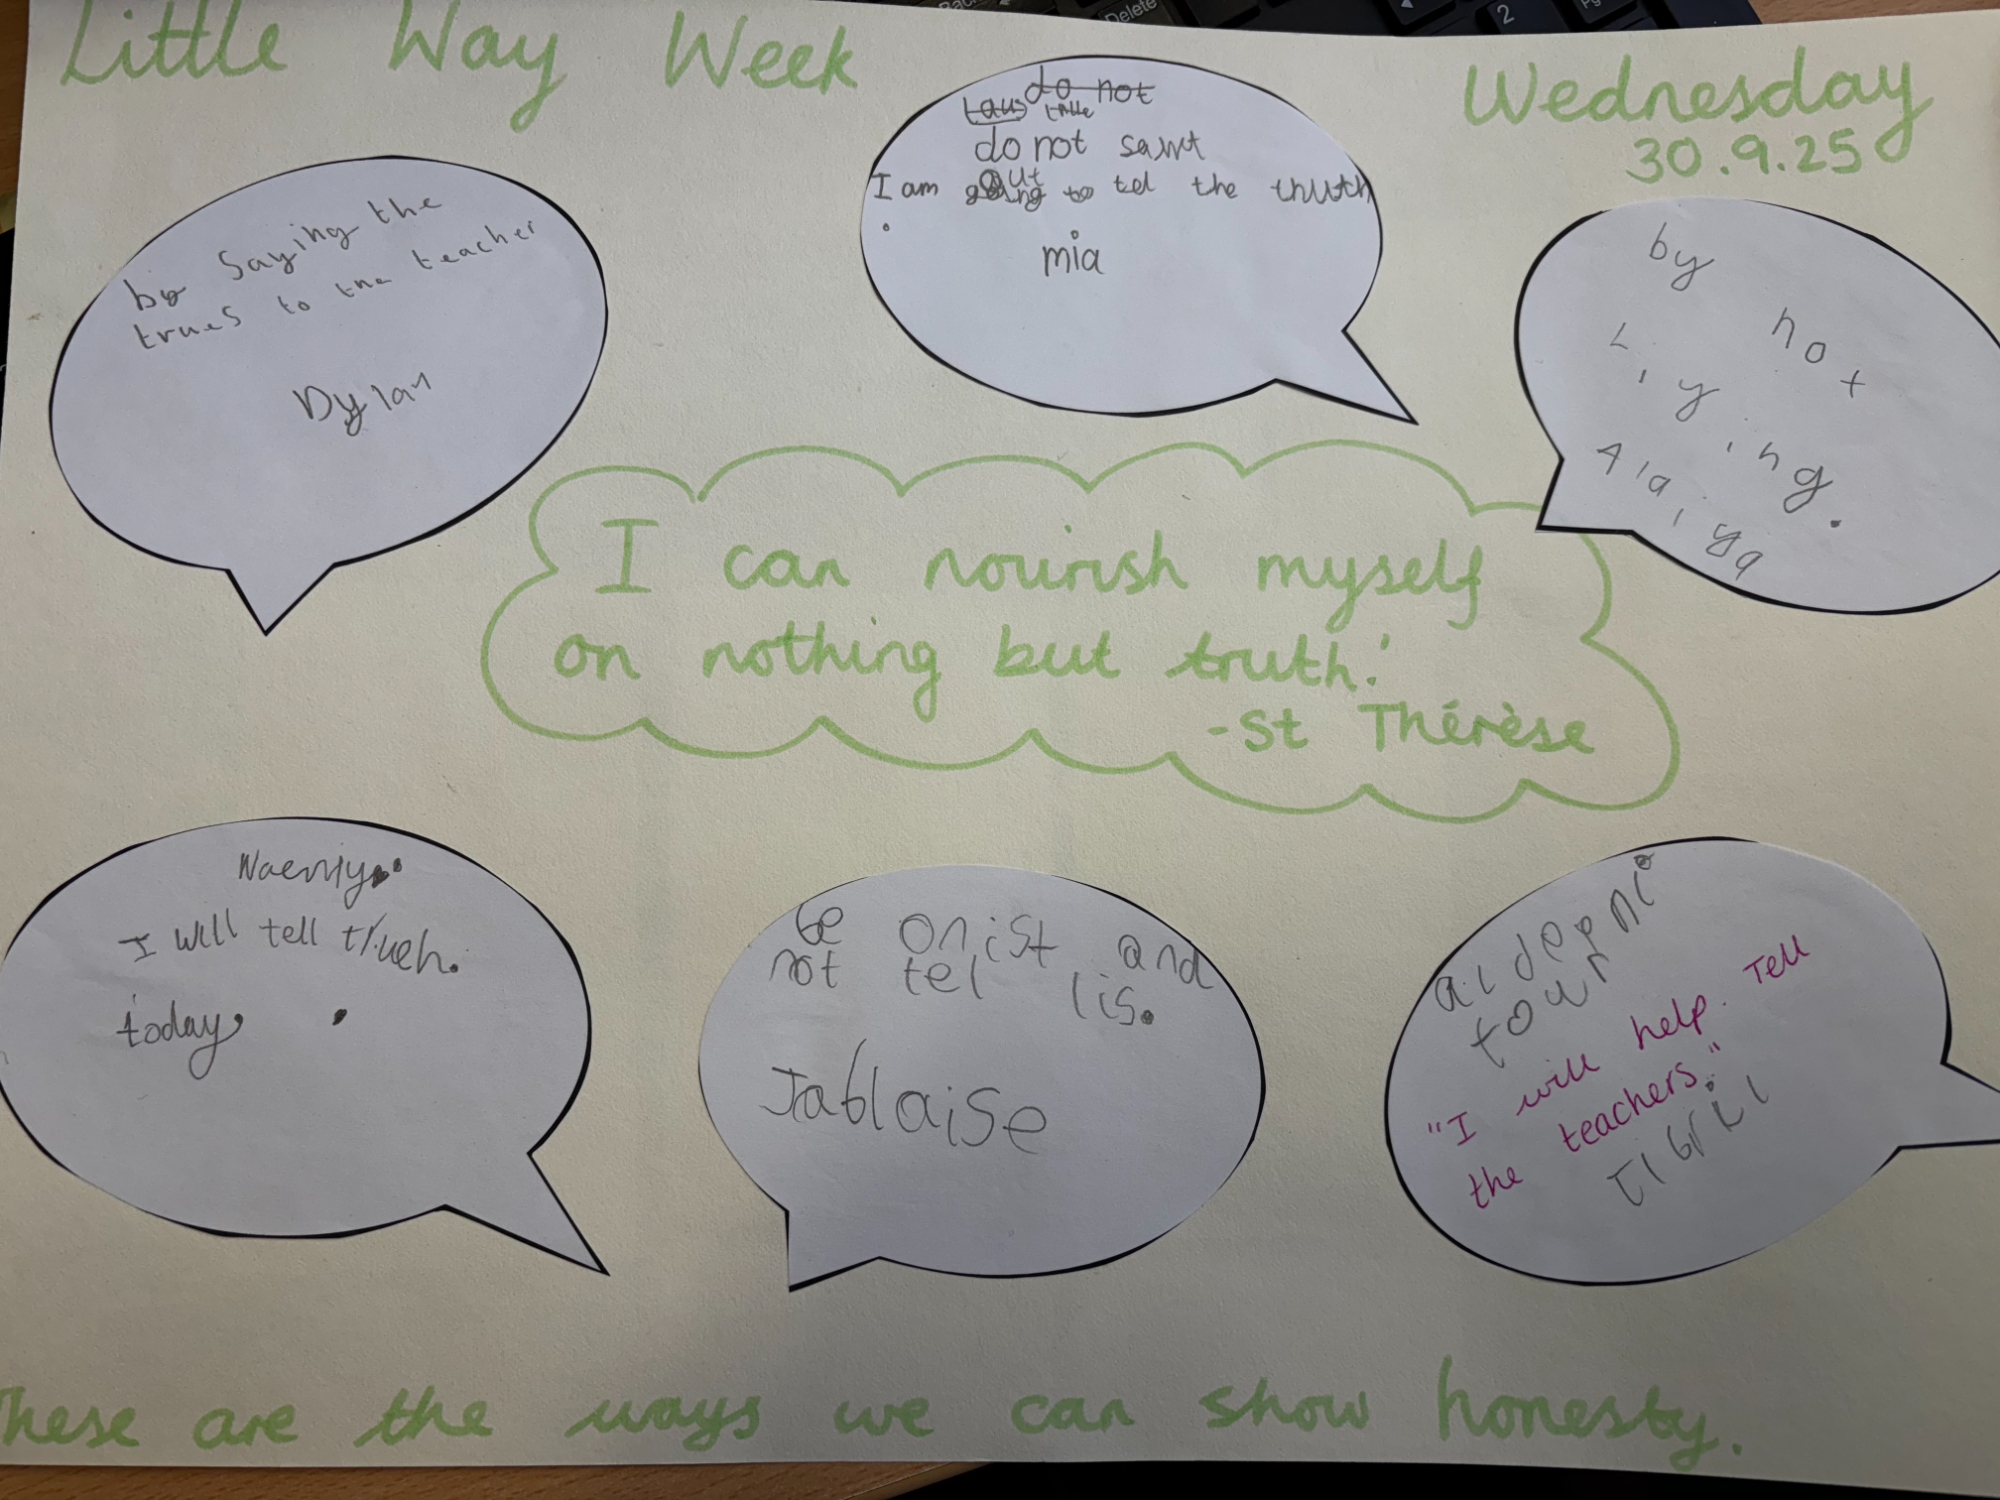 Little Way Week
Wednesday
30.9.25
do not
do not sawt
out
I am going to tel the thuth
.
mia
by saying the
trues to the teacher
Dylan
by not
Lying.
Alaiya
I can nourish myself
on nothing but truth.'
-St Thérèse
I will tell trueh.
today
be onist and
not tel lis.
Jablaise
"I will help. Tell
the teachers."
These are the ways we can show honesty.
Back
Delete
2